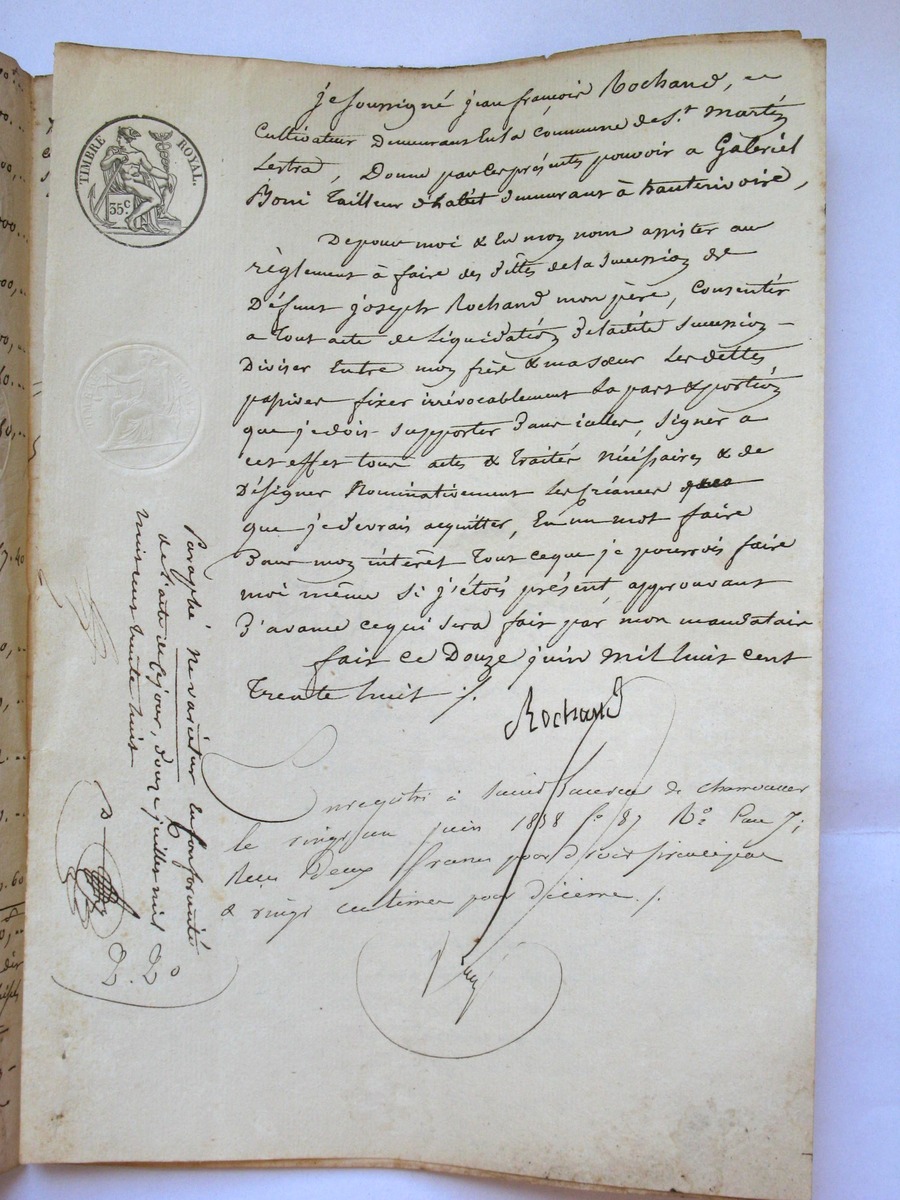 TIMBRE ROYAL.
35c.
je soussigné jean françois Rochand,
Cultivateur Demeurant En la commune de St. Martin
Lestra, Donne par ces présentes pouvoir a Gabriel
Boni Tailleur d'habit demeurant à hauterivoire,
De pour moi & En mon nom assister au
règlement à faire des dettes de la succession de
Défunt joseph Rochand mon père, Consentir
a Tout acte de Liquidation de ladite succession
Diviser Entre mon frère & ma sœur Les dettes
passives fixer irrévocablement La part & portion
que je dois supporter dans icelles, Signer a
cet effet tous actes & traités nécéssaires & de
Désigner Nominativement Les créances
que je devrais acquitter, En un mot faire
Dans mon intérêt Tout ceque je pourrois faire
moi même Si j'étois présent, approuvant
D'avance cequi sera fait par mon mandataire
fait ce Douze juin mil huit cent
Trente huit ./.
Rochand
Enregistré à Saint Laurent de chamousset
le vingt un juin 1838 fo 87 Ro Case 7;
Reçu Deux francs pour droit principal
& vingt centimes pour décime ./.
Paraphé Ne varietur en conformité
de l'acte de ce jour, douze juillet mil
huit cent trente huit